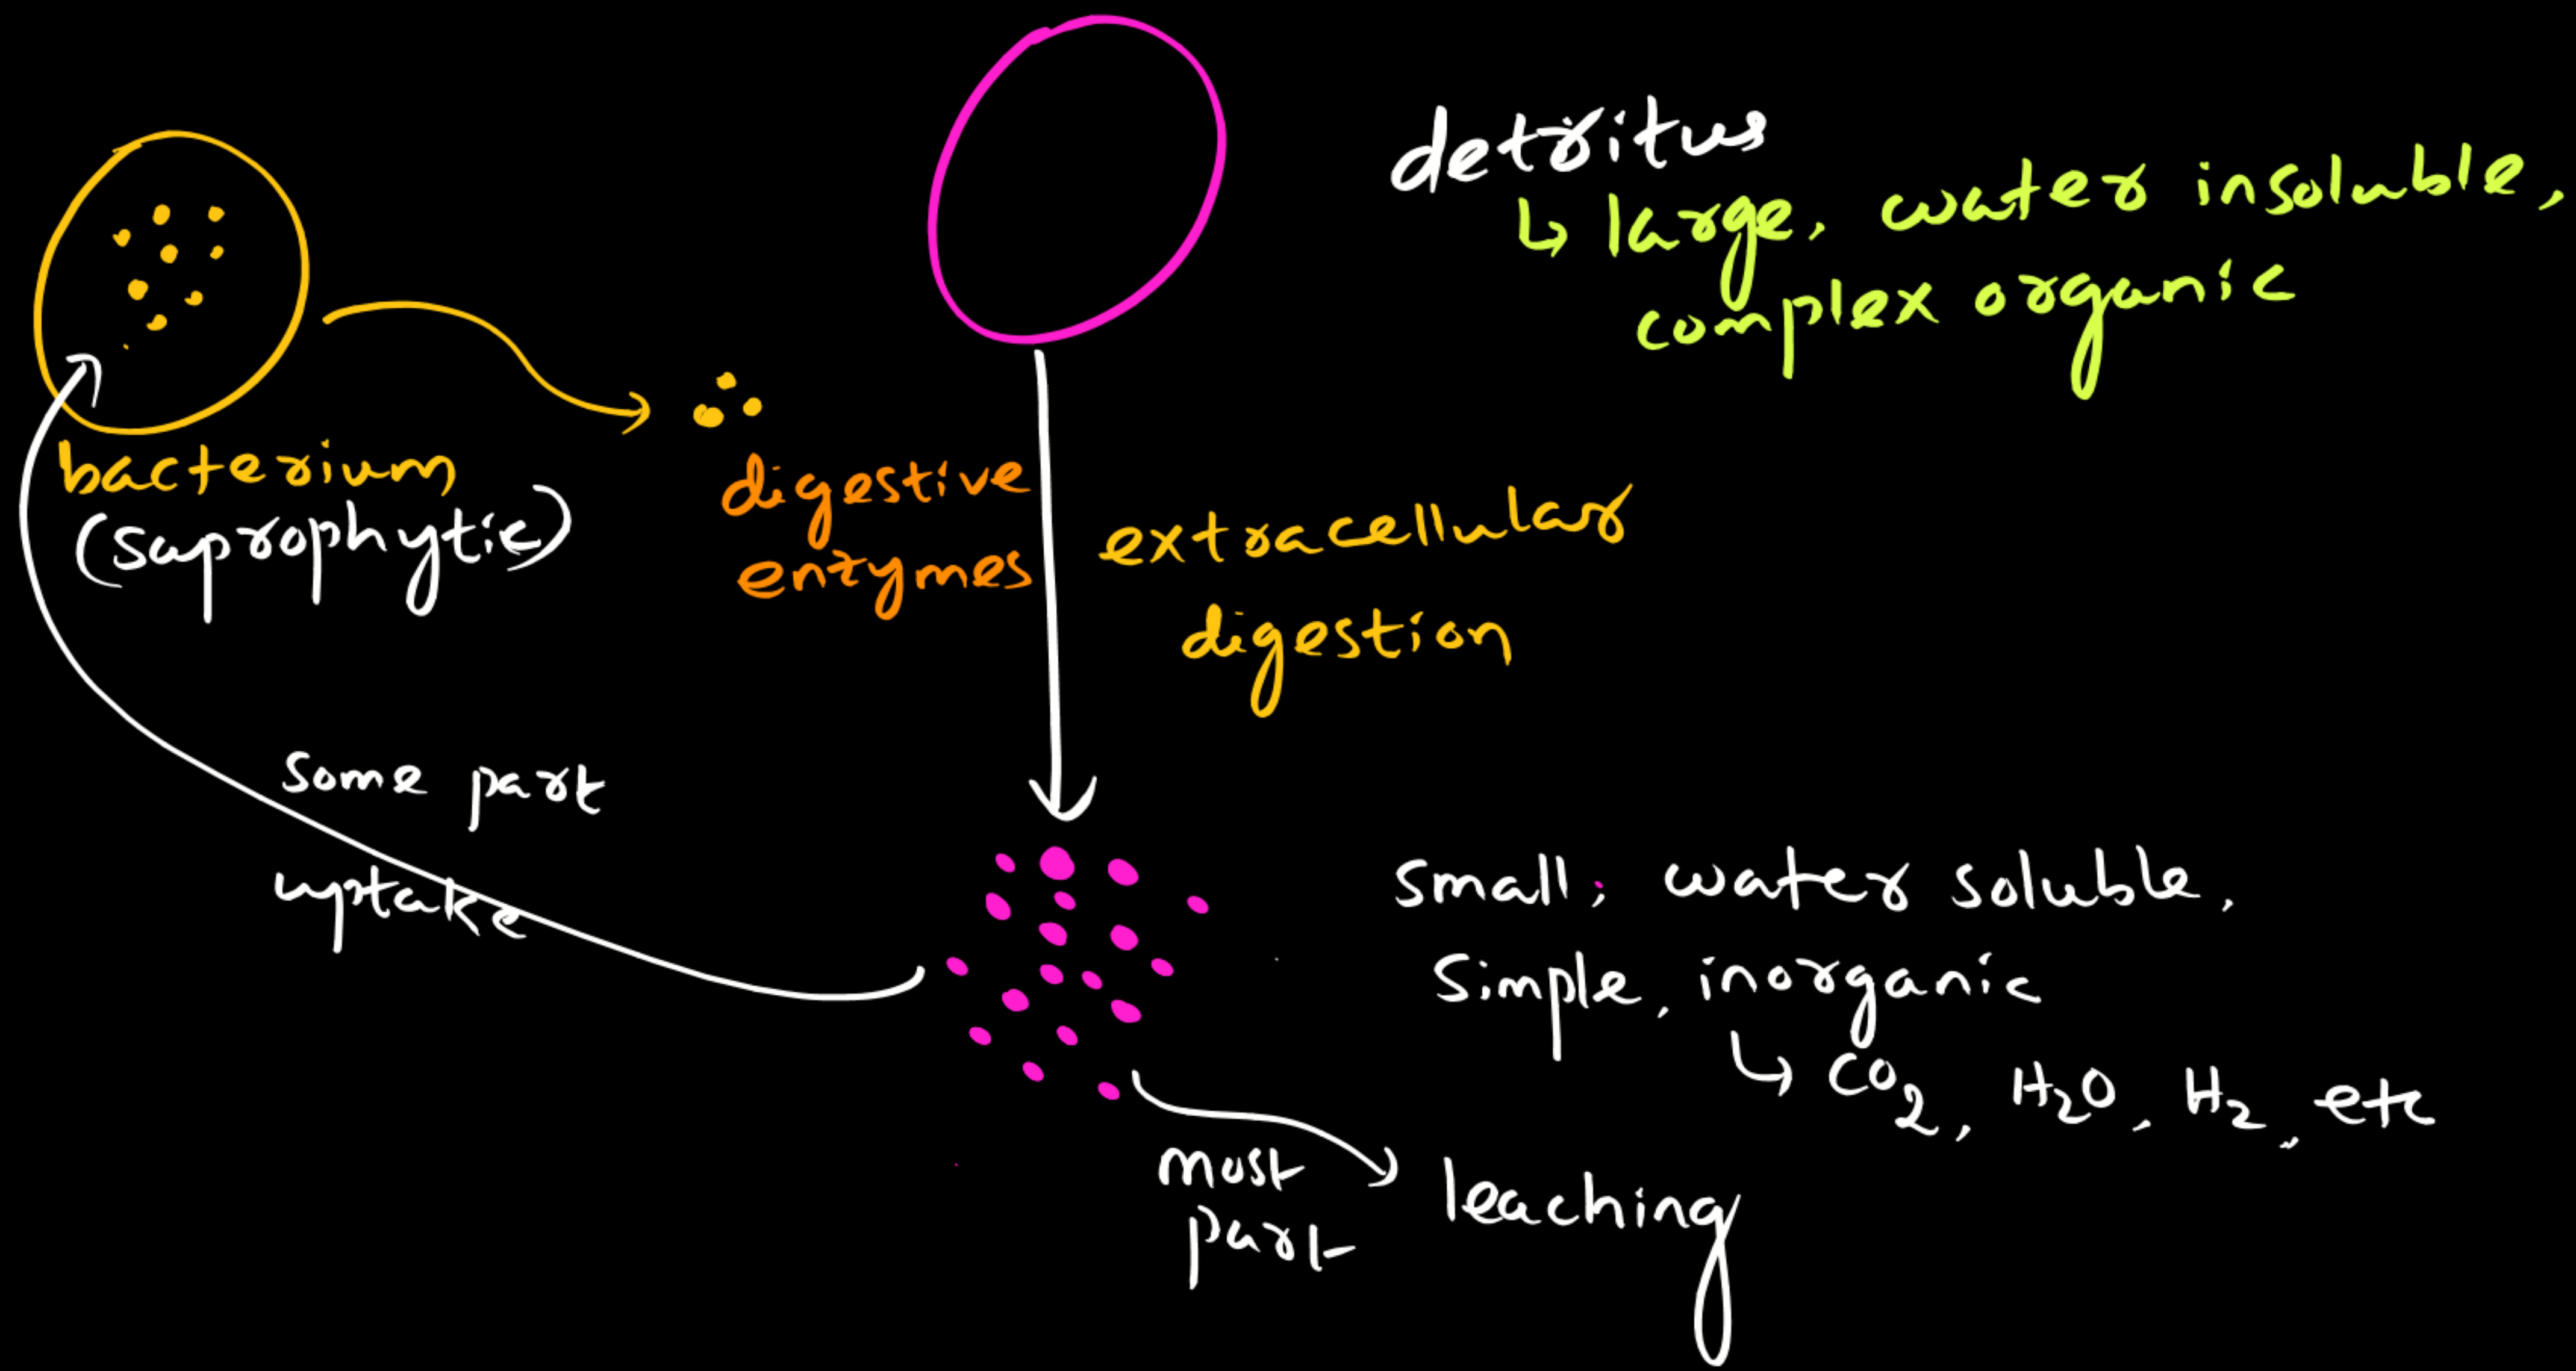 detritus
↳ large, water insoluble,
complex organic
bacterium
(saprophytic)
digestive
enzymes
extracellular
digestion
some part
uptake
small, water soluble,
Simple, inorganic
↳ CO2, H2O, H2, etc
most
part
leaching